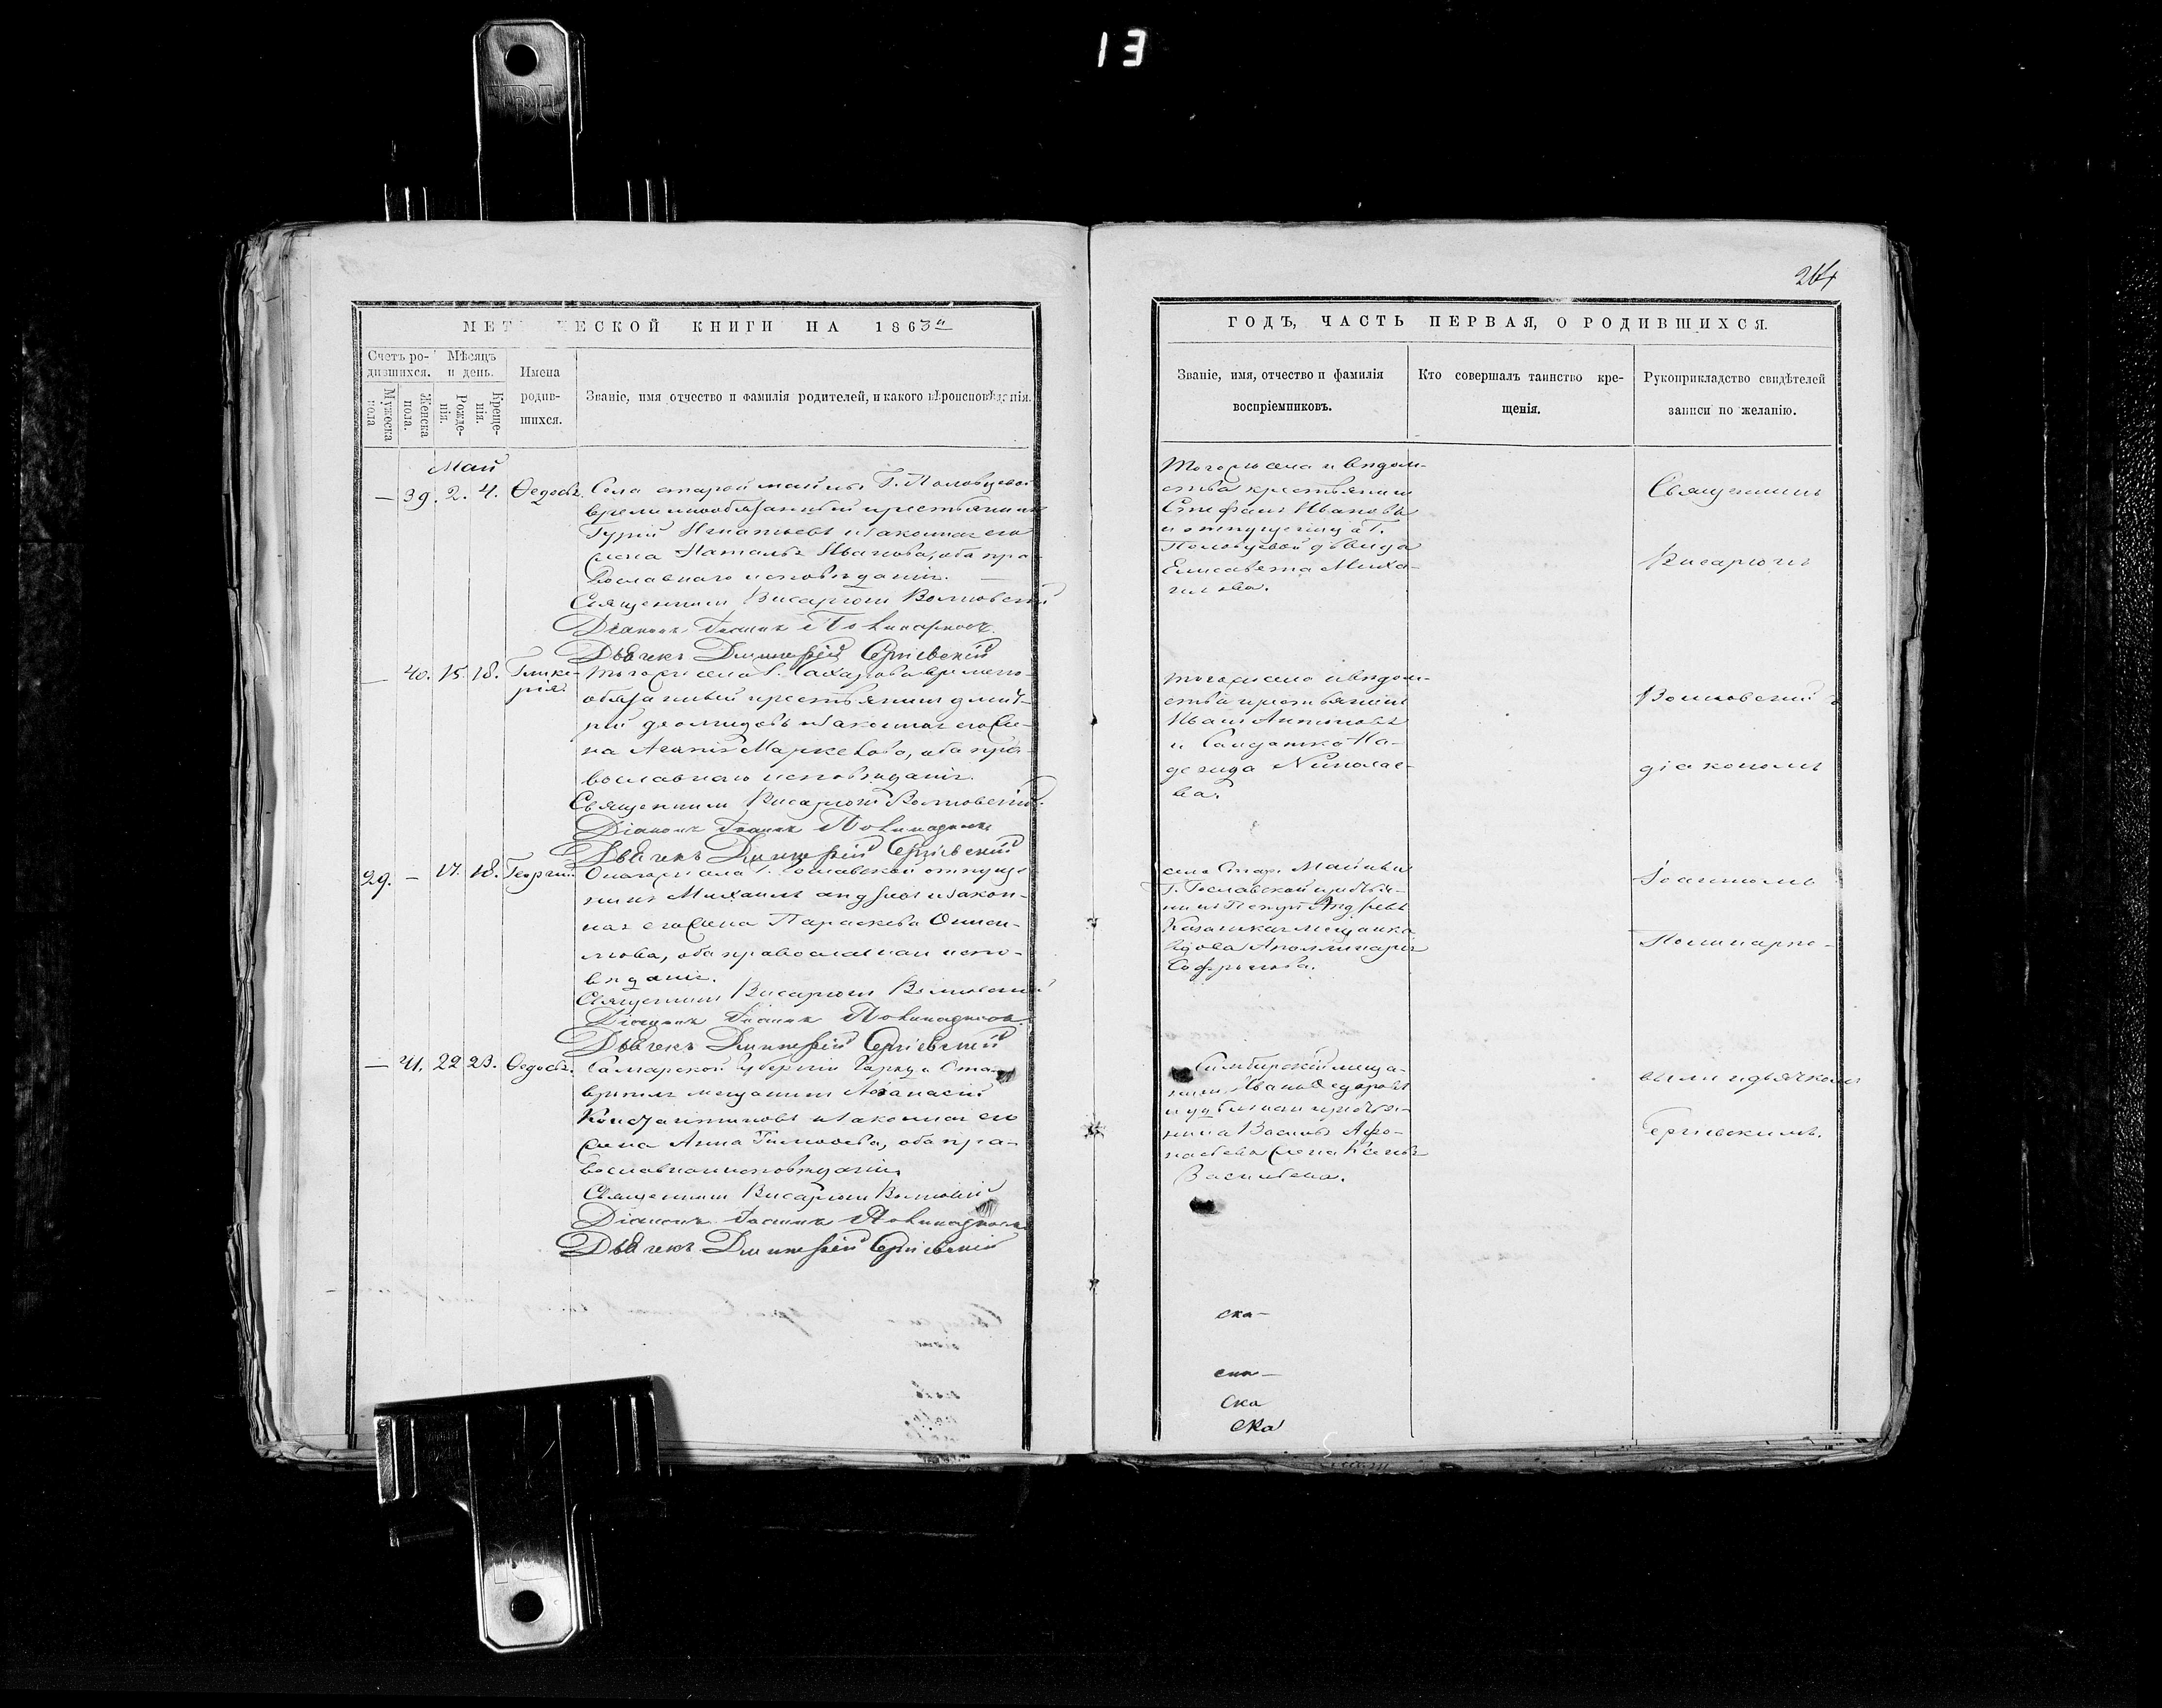 13
264
МЕТРИЧЕСКОЙ КНИГИ НА 1863й
Счетъ ро-
дившихся.
Мѣсяцъ
и день.
Мужеска
пола
Женска
пола.
Рожде-
нія.
Креще-
нія.
Имена
родив-
шихся.
Званіе, имя отчество и фамилія родителей, и какого вѣроисповѣданія.
Май
— 39. 2. 4. Ѳедосья.
Села старой майны Г. Половцевой
временнообязанный крестьянинъ
Гурій Игнатьевъ и законная его
жена Наталья Иванова, оба пра-
вославнаго исповѣданія. —
Священникъ Висаріонъ Волковскій
Діаконъ Іоаннъ Поликарповъ.
Дьячекъ Димитрій Сергіевскій
— 40. 15. 18. Глике-
рія.
Тогоже села Г. Сахарова временно-
обязанный крестьянинъ Дмит-
рій Деомидовъ и законная его же-
на Агапія Маркелова, оба пра-
вославнаго исповѣданія.
Священникъ Висаріонъ Волковскій.
Діаконъ Іоаннъ Поликарповъ
Дьячекъ Димитрій Сергіевскій
29. — 17. 18. Георгій
Онагоже села Г. отпуще-
никъ Михаилъ Андреевъ и закон-
ная его жена Параскева
оба православнаго испо-
вѣданія.
Священникъ Висаріонъ Волковскій
Діаконъ Іоаннъ Поликарповъ.
Дьячекъ Димитрій Сергіевскій
— 41. 22 23. Ѳедосья.
Самарской губерніи города Ста-
врополя мещанинъ Аѳанасій
Константиновъ и законная его
жена Анна Тимоѳеева, оба пра-
вославнаго исповѣданія
Священникъ Висаріонъ Волковскій
Діаконъ Іоаннъ Поликарповъ
Дьячекъ Димитрій Сергіевскій
ГОДЪ, ЧАСТЬ ПЕРВАЯ, О РОДИВШИХСЯ.
Званіе, имя, отчество и фамилія
воспріемниковъ.
Кто совершалъ таинство кре-
щенія.
Рукоприкладство свидѣтелей
записи по желанію.
Тогоже села и вѣдом-
ства крестьянинъ
Стефанъ Ивановъ
и отпущеница Г.
Половцевой дѣвица
Елисавета Миха-
илова.
Тогоже села и вѣдом-
ства крестьянинъ
Иванъ Антоновъ
и Солдатка На-
дежда Николае-
ва.
села Стар. Майны
Г. крестья-
нинъ Петръ Андреевъ
Казанская мещанка
вдова Аполлинарія
Софронова.
Симбирскій меща-
нинъ Иванъ Ѳедоровъ
и крестья-
нина Василья Афо-
насьева жена
Васильева.
ска-
ска-
Ска
Ска
Священникъ
Висаріонъ
Волковскій съ
діакономъ
Іоанномъ
Поликарпо-
вымъ и дьячкомъ
Сергіевскимъ.